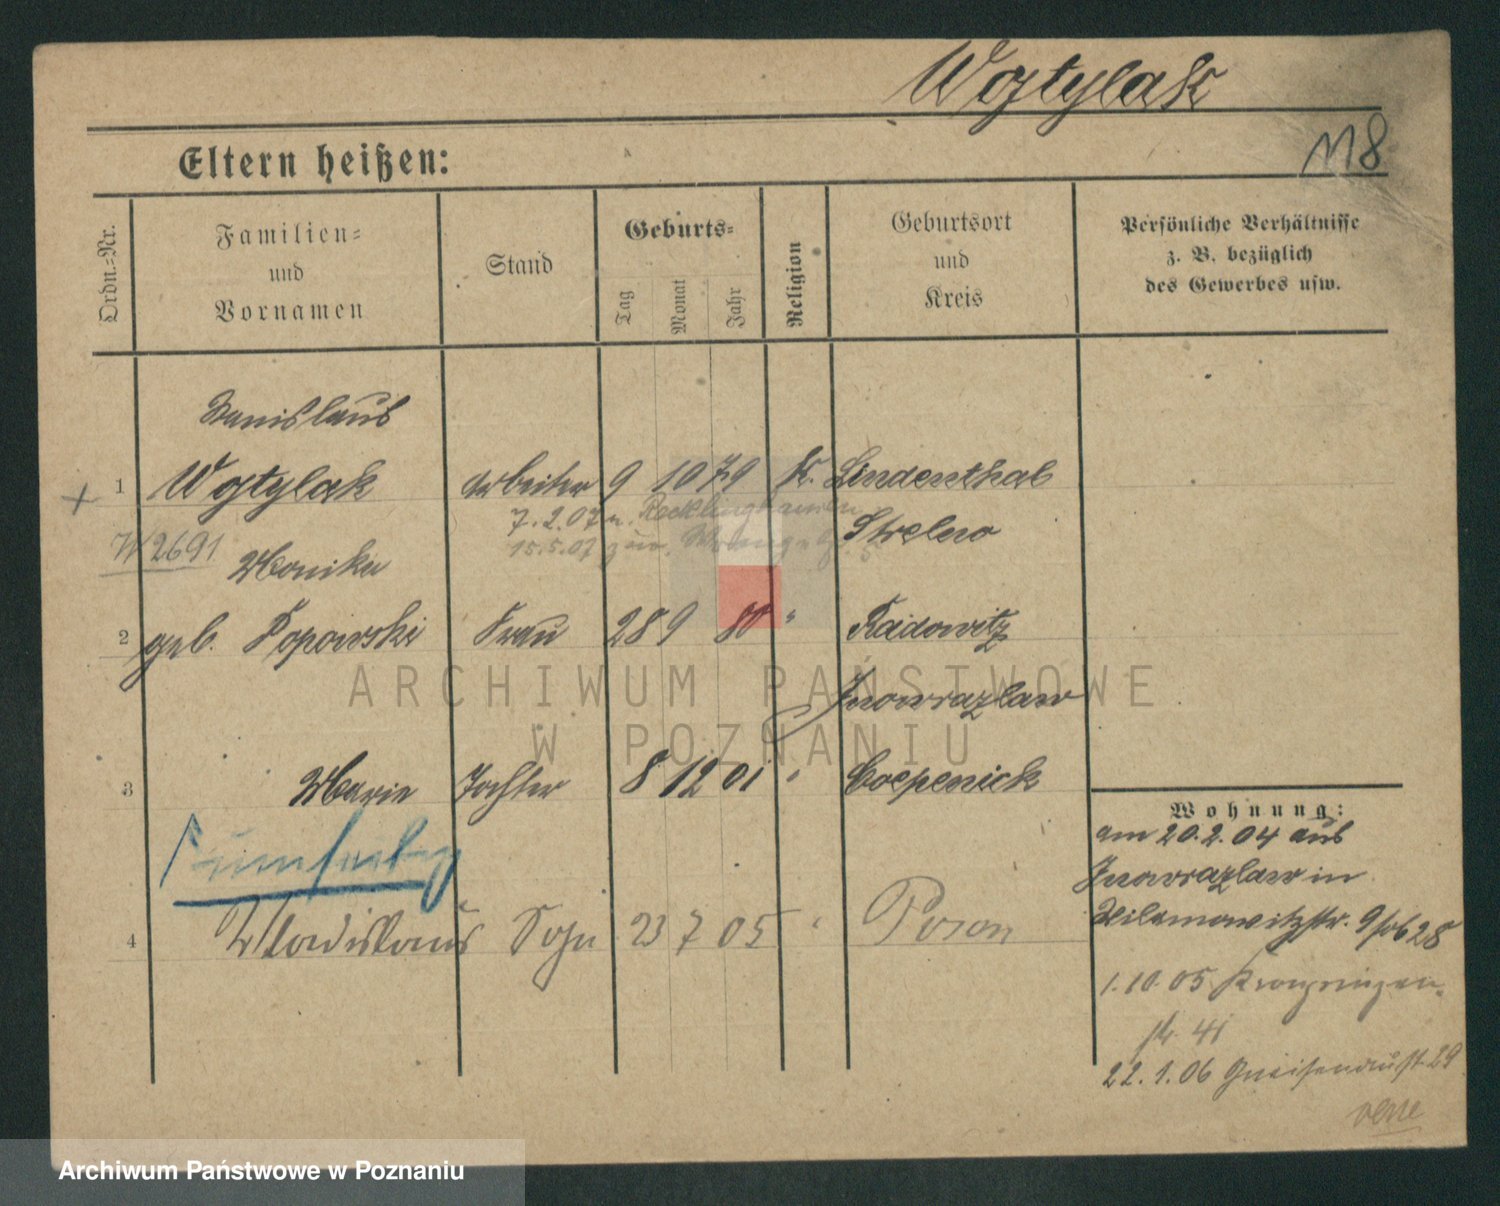 Wojtylak
118
Eltern heißen:
Ordn.=Nr.
Familien=
und
Vornamen
Stand
Geburts=
Tag
Monat
Jahr
Religion
Geburtsort
und
Kreis
Persönliche Verhältnisse
z. B. bezüglich
des Gewerbes usw.
Stanislaus
1 Wojtylak Arbeiter 9 10 79 K. Lindenthal
7.2.07 n. Recklinghausen
Strelno
W2691
15.5.07 zur.
Monika
2 geb. Popowski Frau 28 9 80 " Radowitz
Inowrazlaw
3 Marie Tochter 8 12 01 " Coepenick
Wohnung:
am 20.2.04 aus
Inowrazlaw in
4 Wladislaus Sohn 23 7 05 " Posen
Wilamowitzstr. 9 28
1.10.05 Kronprinzen-
str 41
22.1.06 Gneisenaustr 29
ARCHIWUM PAŃSTWOWE
W POZNANIU
Archiwum Państwowe w Poznaniu